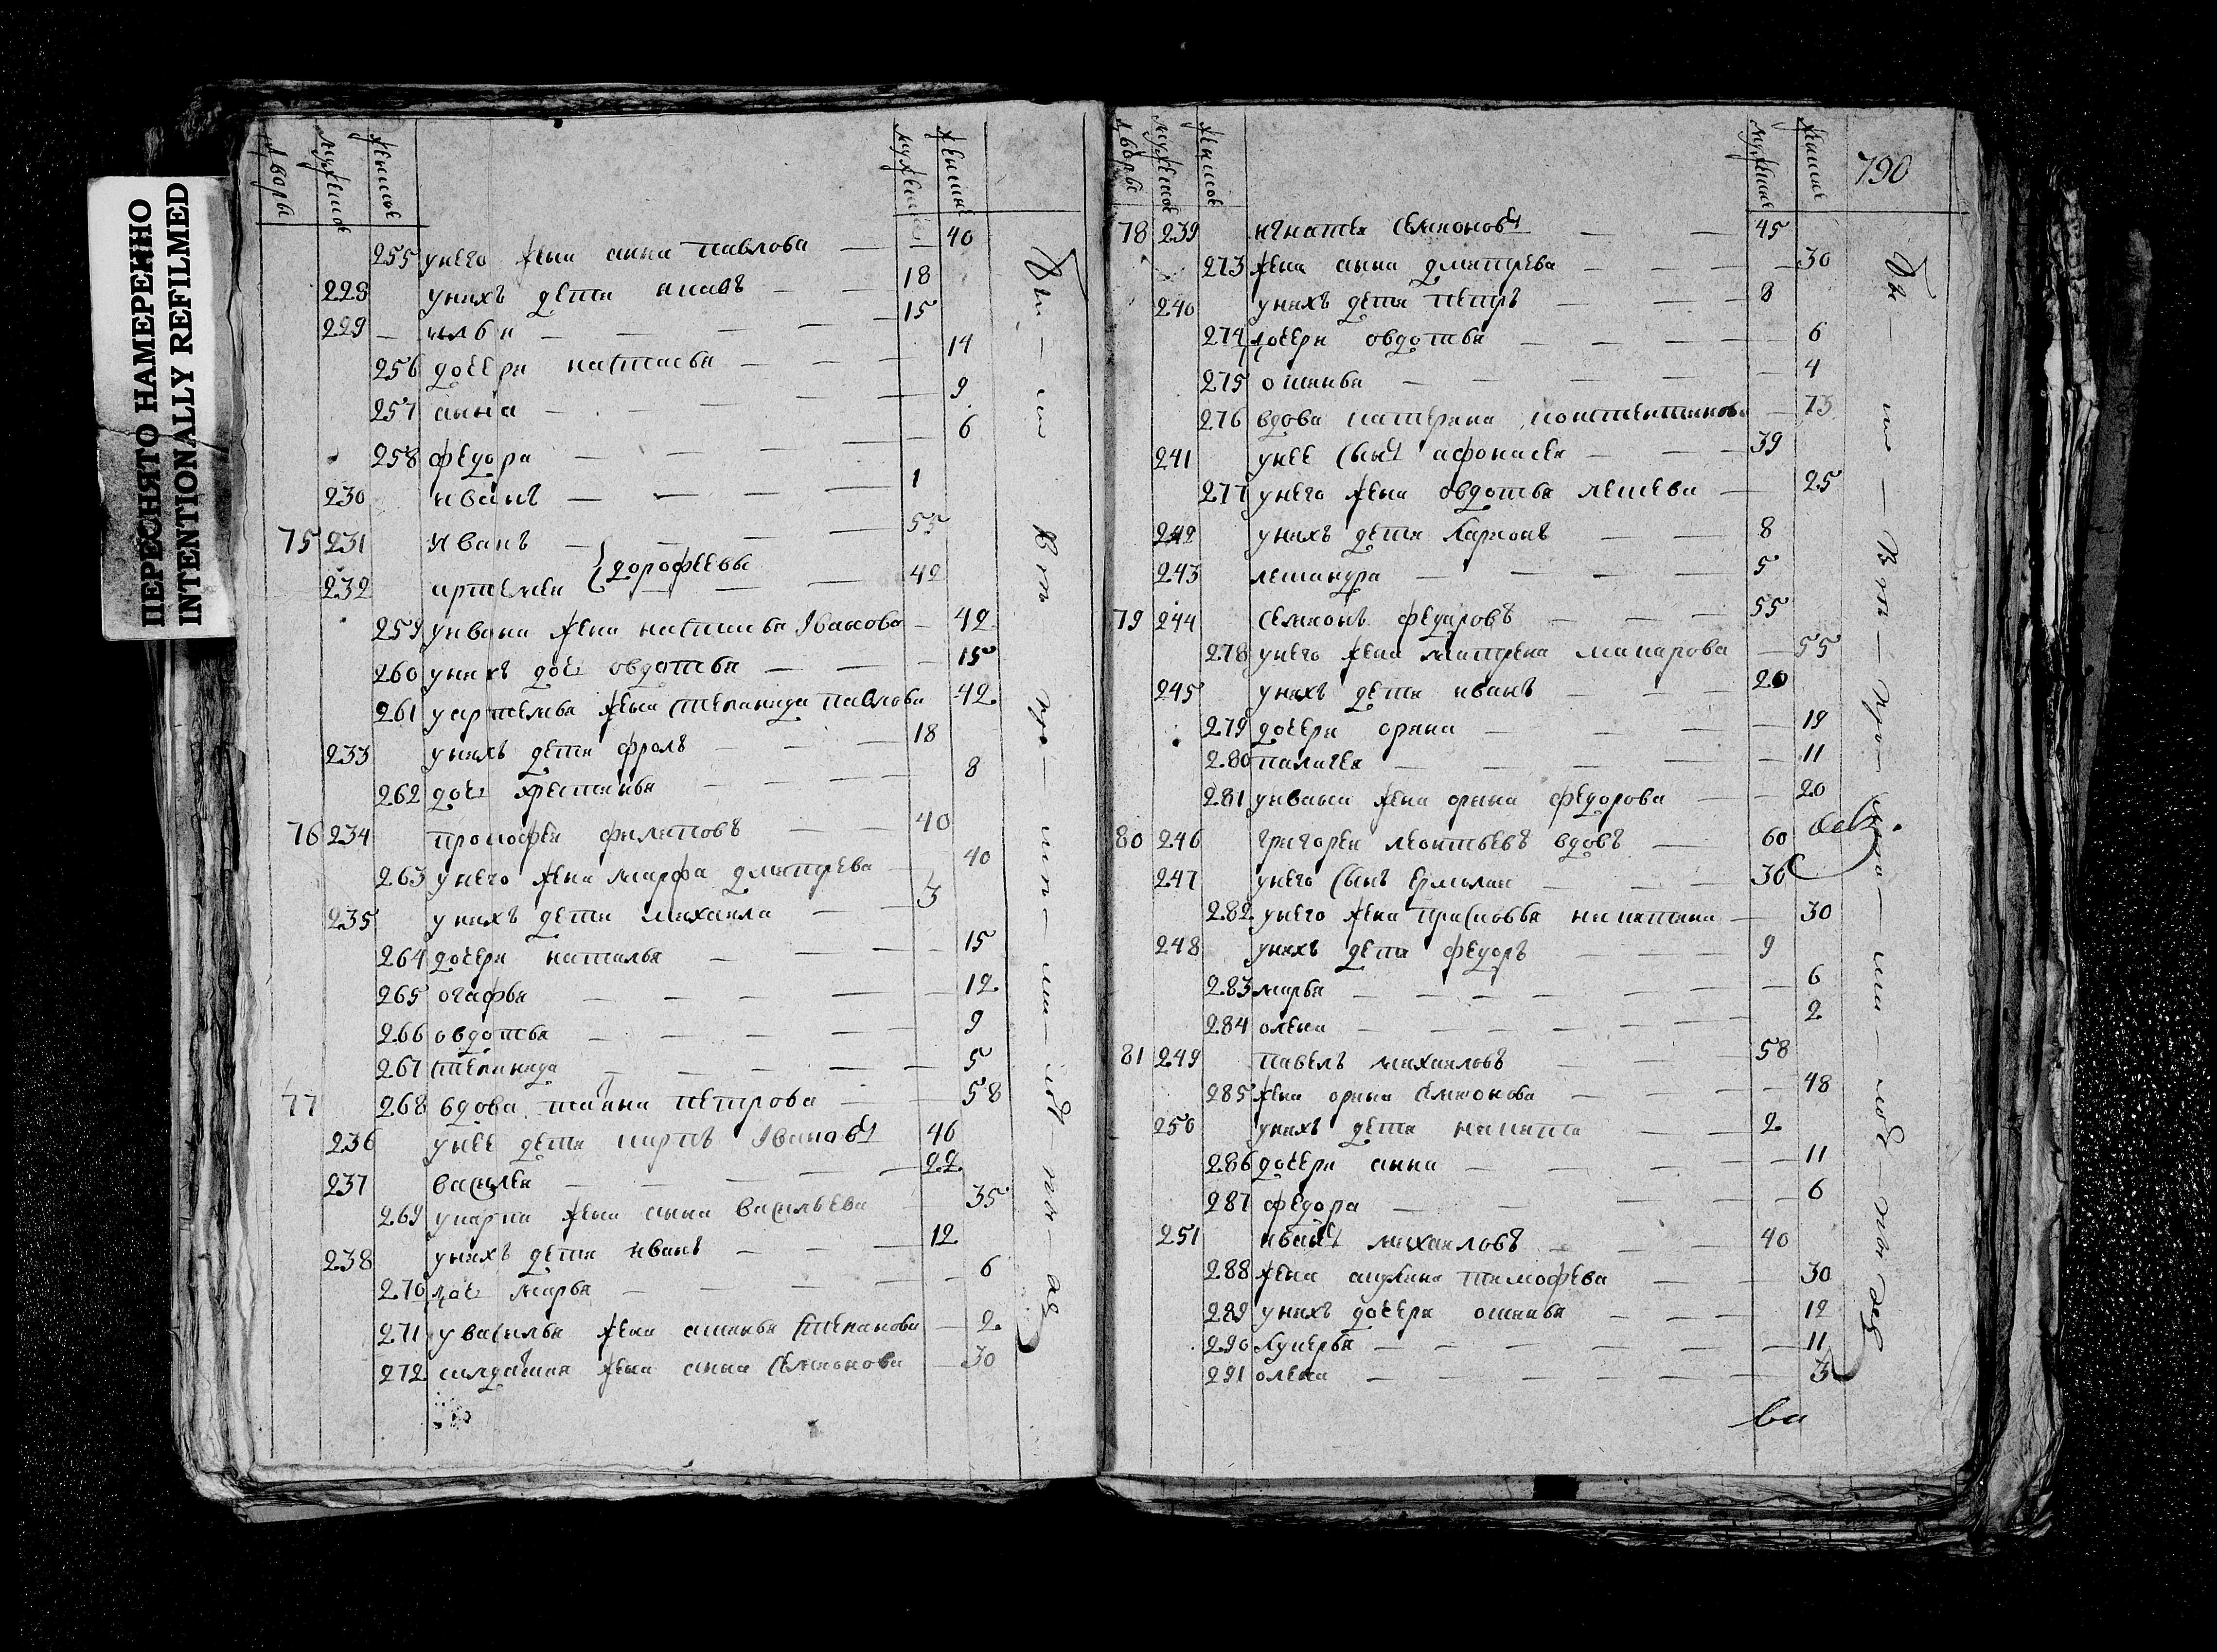 ПЕРЕСНЯТО НАМЕРЕННО
INTENTIONALLY REFILMED
дворы мужеска женска мужеска женска
255 унего жена анна павлова — 40
228 унихъ дети 18
229 илья 15
256 дочери настасья 14
257 анна 9
258 федора 6
230 иванъ 1
75 231 иванъ 55
дорофеевы
232 артемеи 42
259 уивана жена настасья Іванова 42
260 унихъ доч овдотья 15
261 уартемья жена степанида павлова 42
233 унихъ дети фролъ 18
262 доч хрестинья 8
76 234 прокофеи филиповъ 40
263 унего жена марфа дмитрева 40
235 унихъ дети михаила 3
264 дочери наталья 15
265 огафья 12
266 овдотья 9
267 степанида 5
77 268 вдова татьяна петрова 58
236 унее дети карпъ Іванов 40
237 василеи 22
269 укарпа жена анна васильева 35
238 унихъ дети иванъ 12
270 доч марья 6
271 увасилья жена степанова 2
272 салдатка жена анна семионова 30
дворы мужеска женска мужеска женска 790
78 239 игнатеи семионов 45
273 жена анна дмитрева 30
240 унихъ дети петръ 8
274 дочери овдотья 6
275 оксинья 4
276 вдова катерина констентинова 73
241 унее сынъ афонасеи 39
277 унего жена овдотья алексева 25
242 унихъ дети ларионъ 8
243 лександра 5
79 244 семионъ федоровъ 55
278 унего жена матрена макарова 55
245 унихъ дети иванъ 20
279 дочери орина 19
280 палагея 11
281 уивана жена орина федорова 20
80 246 григореи леонтьевъ вдовъ 60
247 унего сынъ ермолаи 30
282 унего жена прасковья никитина 30
248 унихъ дети федоръ 9
283 марья 6
284 олена 2
81 249 павелъ михаиловъ 58
285 жена орина семионова 48
250 унихъ дети никита 2
286 дочери анна 11
287 федора 6
251 иванъ михаиловъ 40
288 жена акулина тимофева 30
289 унихъ дочери оксинья 12
290 лукерья 11
291 олена 3